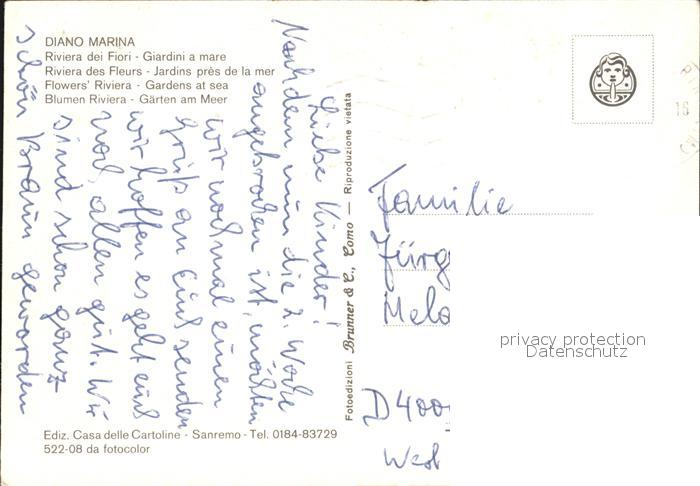 DIANO MARINA
Riviera dei Fiori - Giardini a mare
Riviera des Fleurs - Jardins près de la mer
Flowers' Riviera - Gardens at sea
Blumen Riviera - Gärten am Meer
Liebe Kinder!
Nachdem nun die 2. Woche
angebrochen ist, möchten
wir nochmal einen
Gruß an Euch senden
wir hoffen es geht euch
noch allen gut. Wir
sind schon ganz
schön braun geworden
Fotoedizioni Brunner & C., Como — Riproduzione vietata
Familie
Jürg
Melo
D 400
West
privacy protection
Datenschutz
Ediz. Casa delle Cartoline - Sanremo - Tel. 0184-83729
522-08 da fotocolor
16